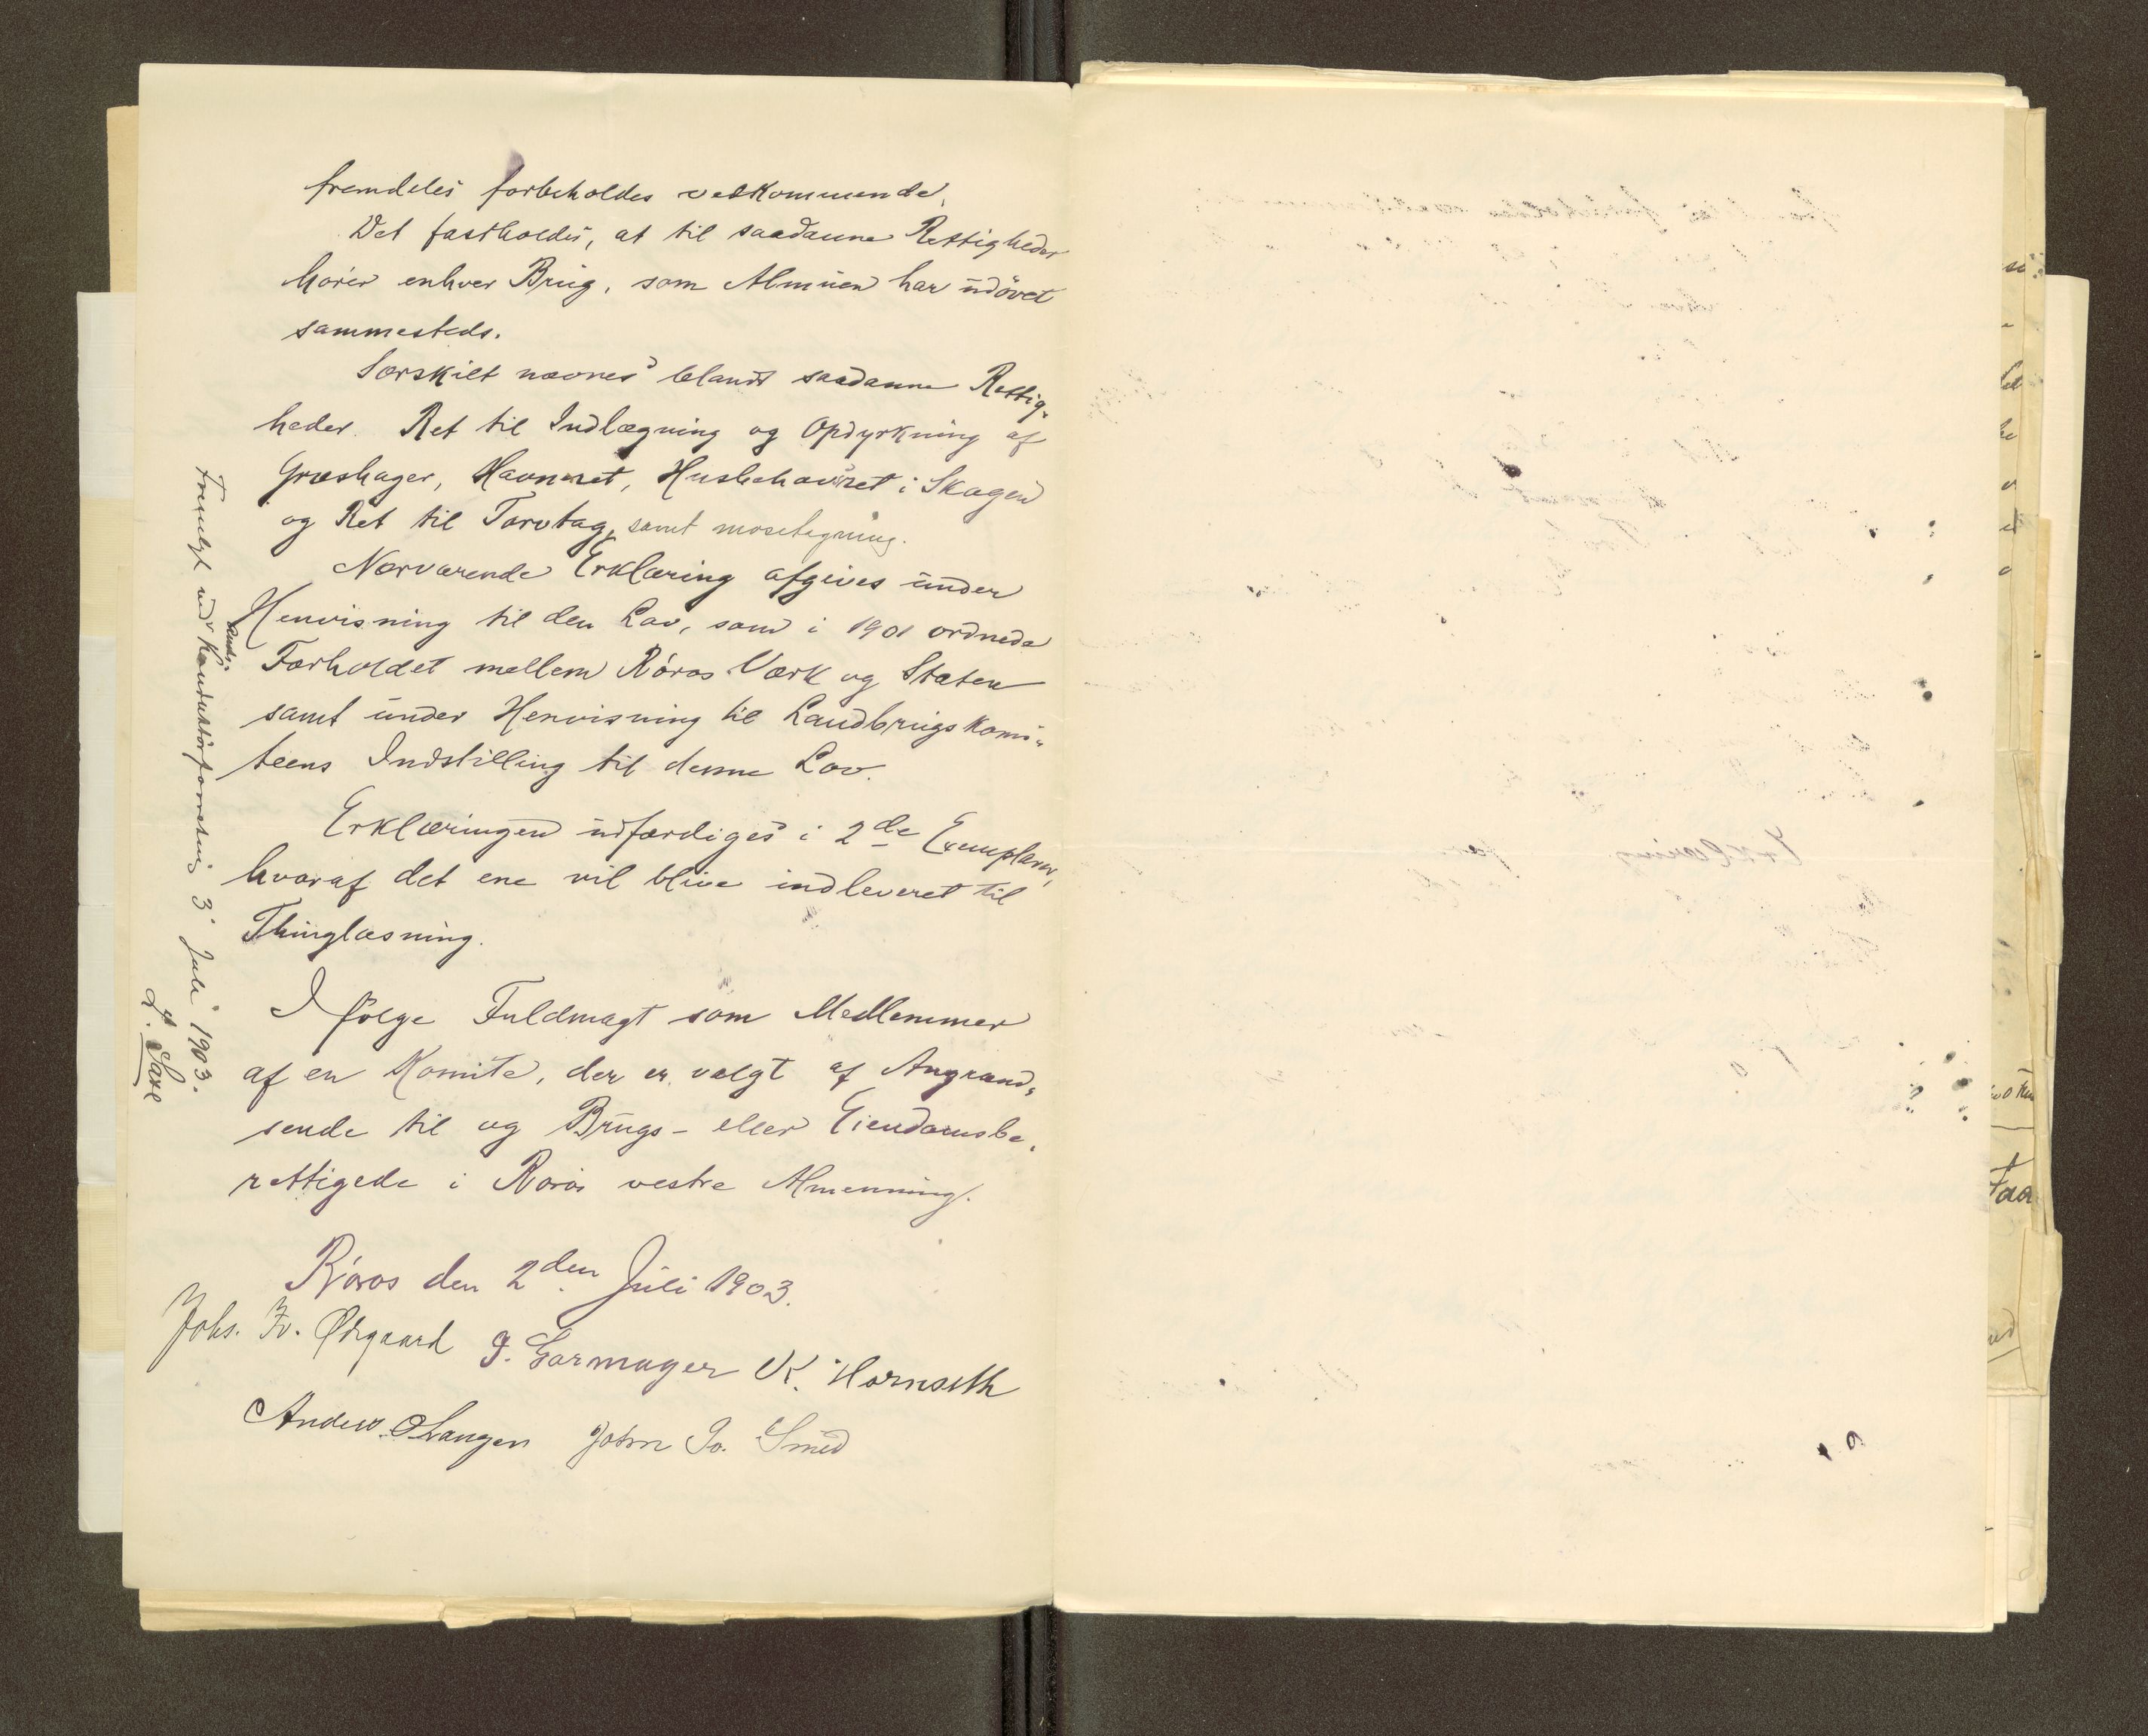 fremdeles forbeholdes vedkommende.
Det fastholdes, at til saadanne Rettigheder
hører enhver Brug, som Almuen har udövet
sammesteds.
Særskilt nævnes blandt saadanne Rettig-
heder Ret til Indlægning og Opdyrkning af
Græshager, Havneret, Husbehovsret i Skogen
og Ret til Torvtag, samt mosetegning.
Nærværende Erklæring afgives under
Henvisning til den Lov, som i 1901 ordnede
Forholdet mellem Røros Værk og Staten
samt under Henvisning til Landbrugskomi-
teens Indstilling til denne Lov.
Erklæringen udfærdiges i 2de Exemplarer,
hvoraf det ene vil blive indleveret til
Thinglæsning.
I følge Fuldmagt som Medlemmer
af en Komite, der er valgt af Angrænd-
sende til og Brugs- eller Eiendomsbe-
rettigede i Røros vestre Almenning.
Røros den 2den Juli 1903.
Johs. Fr. Ødegaard J. Gormager K. Hornseth
Anders Olangen John Jo. Smed
Fremlagt ved Konduktörforretning 3 Juli 1903.
L. Saxe